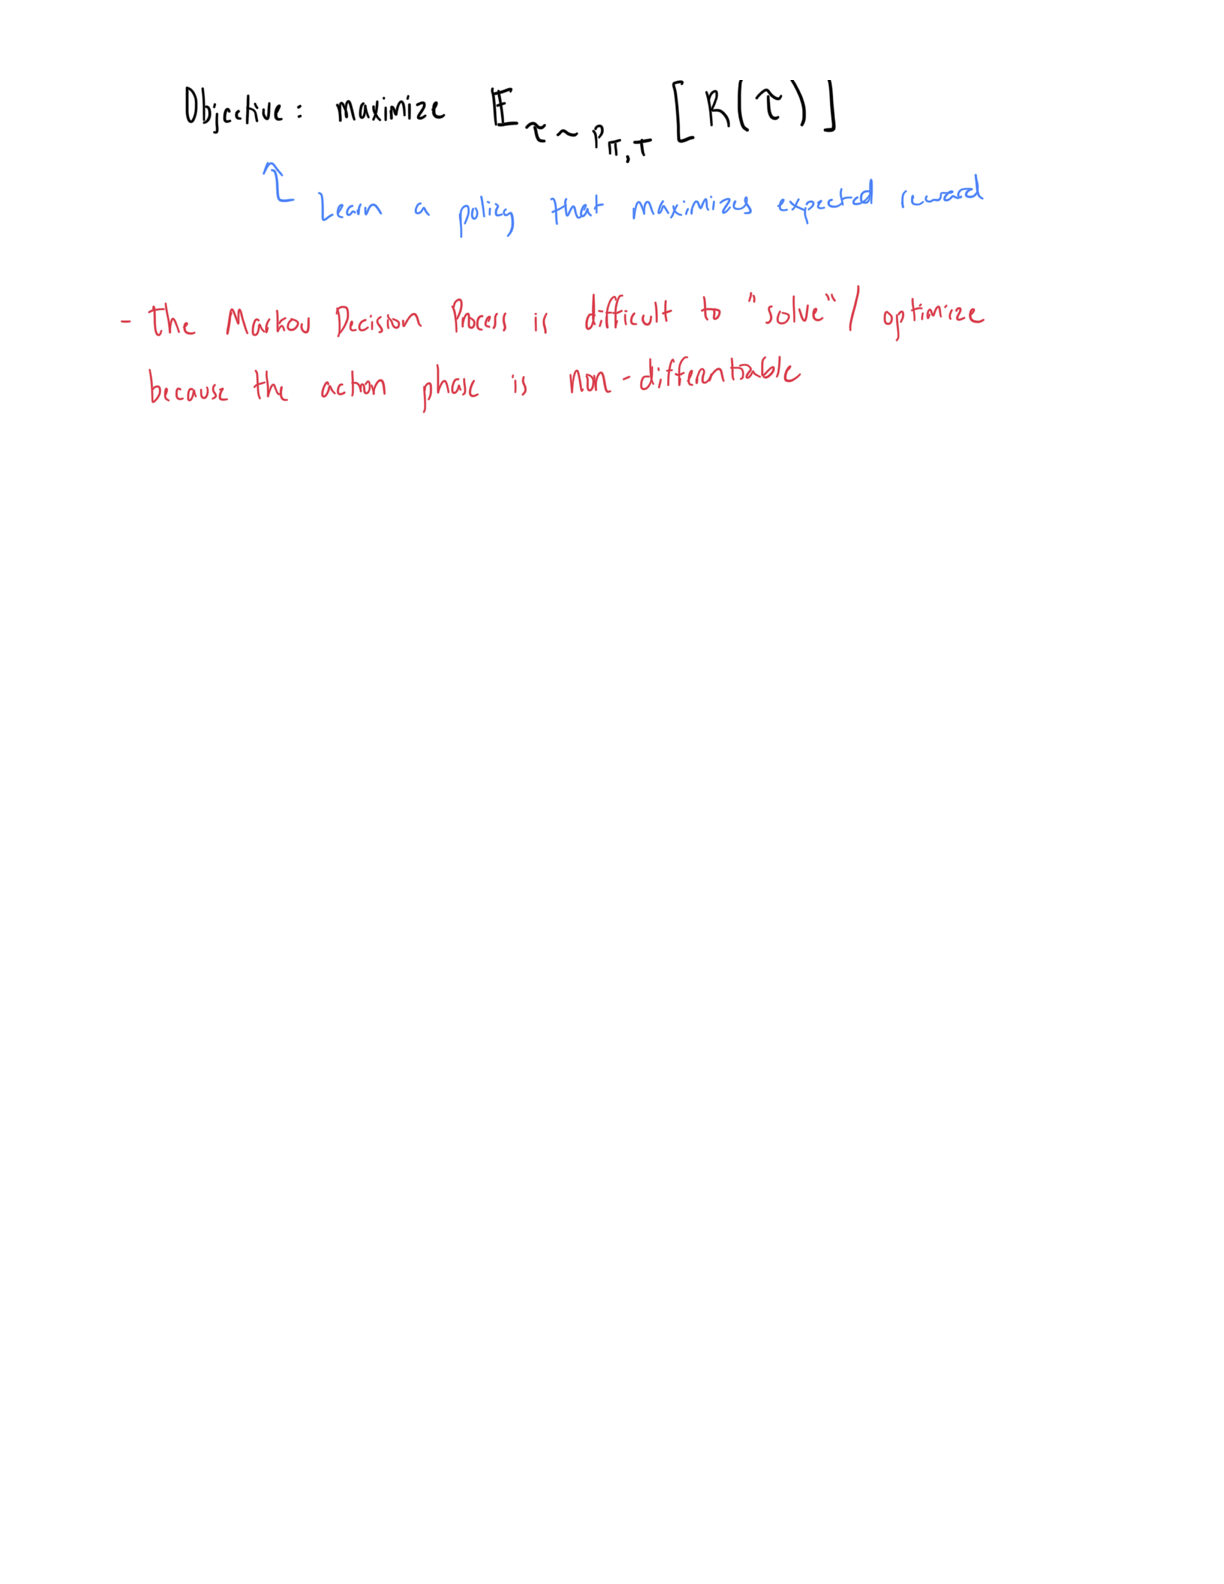 Objective: maximize 𝔼_{τ ~ P_{π,T}} [R(τ)]
Learn a policy that maximizes expected reward
- the Markov Decision Process is difficult to "solve" / optimize
because the action phase is non-differntiable